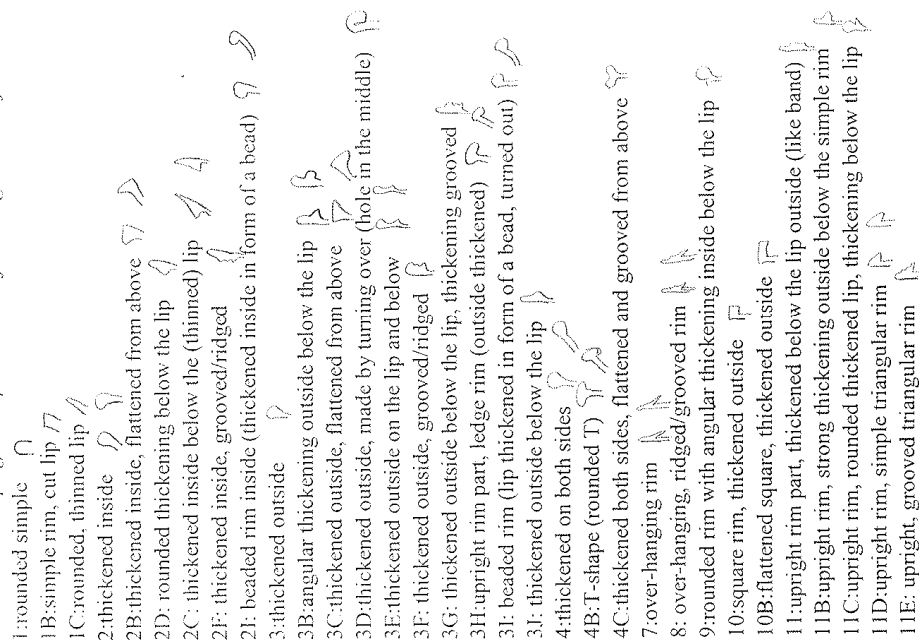 1:rounded simple
1B:simple rim, cut lip
1C:rounded, thinned lip
2:thickened inside
2B:thickened inside, flattened from above
2D: rounded thickening below the lip
2C: thickened inside below the (thinned) lip
2F: thickened inside, grooved/ridged
2I: beaded rim inside (thickened inside in form of a bead)
3:thickened outside
3B:angular thickening outside below the lip
3C:thickened outside, flattened from above
3D:thickened outside, made by turning over (hole in the middle)
3E:thickened outside on the lip and below
3F: thickened outside, grooved/ridged
3G: thickened outside below the lip, thickening grooved
3H:upright rim part, ledge rim (outside thickened)
3I: beaded rim (lip thickened in form of a bead, turned out)
3J: thickened outside below the lip
4:thickened on both sides
4B:T-shape (rounded T)
4C:thickened both sides, flattened and grooved from above
7:over-hanging rim
8: over-hanging, ridged/grooved rim
9:rounded rim with angular thickening inside below the lip
10:square rim, thickened outside
10B:flattened square, thickened outside
11:upright rim part, thickened below the lip outside (like band)
11B:upright rim, strong thickening outside below the simple rim
11C:upright rim, rounded thickened lip, thickening below the lip
11D:upright rim, simple triangular rim
11E: upright, grooved triangular rim